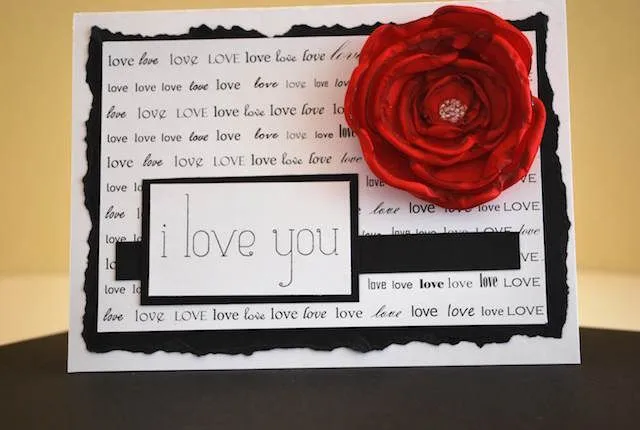 love love love LOVE love love love love
love love love love love love love love
love love LOVE love love love love
love love love love love love love love love
love love love LOVE love love love love
love
love love love love love LOVE
i love you
love love love love love LOVE
love love LOVE love love love love love love love love love LOVE